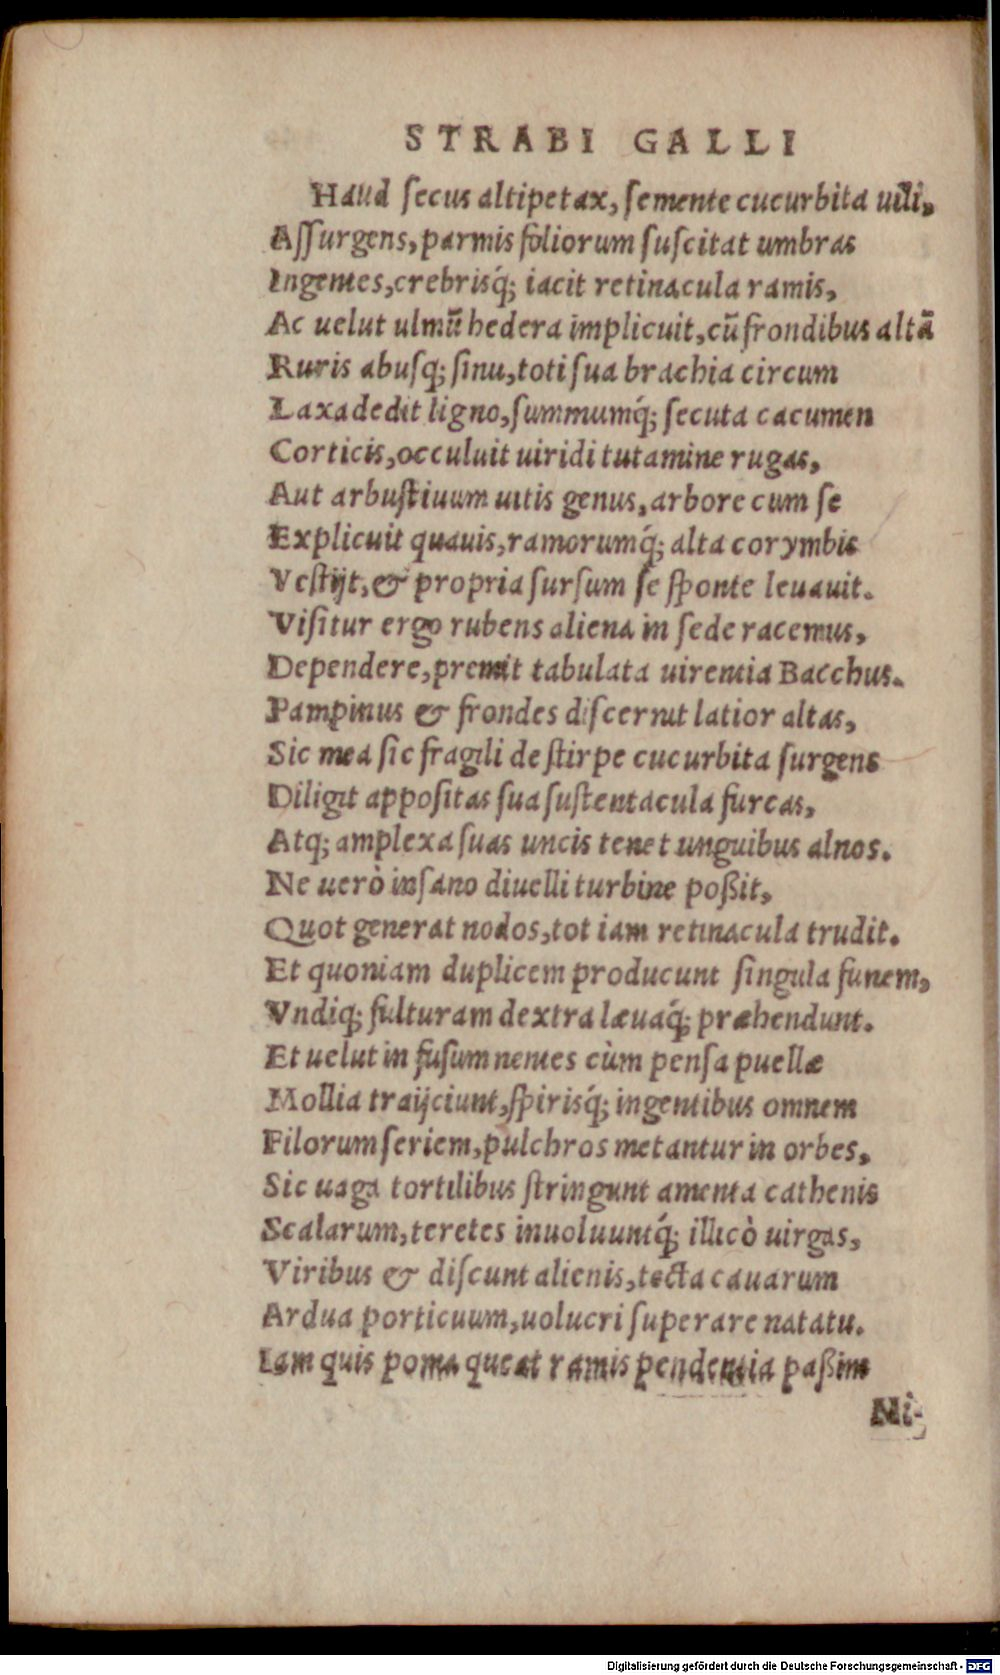 STRABI GALLI
Haud ſecus altipetax, ſemente cucurbita uili,
Aſſurgens, parmis foliorum ſuſcitat umbras
Ingentes, crebrisq́; iacit retinacula ramis,
Ac uelut ulmū hedera implicuit, cū frondibus altā
Ruris abuſq; ſinu, toti ſua brachia circum
Laxa dedit ligno, ſummumq́; ſecuta cacumen
Corticis, occuluit uiridi tutamine rugas,
Aut arbuſtiuum uitis genus, arbore cum ſe
Explicuit quauis, ramorumq́; alta corymbis
Veſtijt, & propria ſurſum ſe ſponte leuauit.
Viſitur ergo rubens aliena in ſede racemus,
Dependere, premit tabulata uirentia Bacchus.
Pampinus & frondes diſcernit latior altas,
Sic mea ſic fragili de ſtirpe cucurbita ſurgens
Diligit appoſitas ſua ſuſtentacula furcas,
Atq; amplexa ſuas uncis tenet unguibus alnos.
Ne uerò inſano diuelli turbine poßit,
Quot generat nodos, tot iam retinacula trudit.
Et quoniam duplicem producunt ſingula funem,
Vndiq; fulturam dextra læuaq́; præhendunt.
Et uelut in fuſum nentes cùm penſa puellæ
Mollia traijciunt, ſpirisq́; ingentibus omnem
Filorum ſeriem, pulchros metantur in orbes,
Sic uaga tortilibus ſtringunt amenta cathenis
Scalarum, teretes inuoluuntq́; illicò uirgas,
Viribus & diſcunt alienis, tecta cauarum
Ardua porticuum, uolucri ſuperare natatu.
Iam quis poma queat ramis pendentia paßim
Ni-
Digitalisierung gefördert durch die Deutsche Forschungsgemeinschaft - DFG